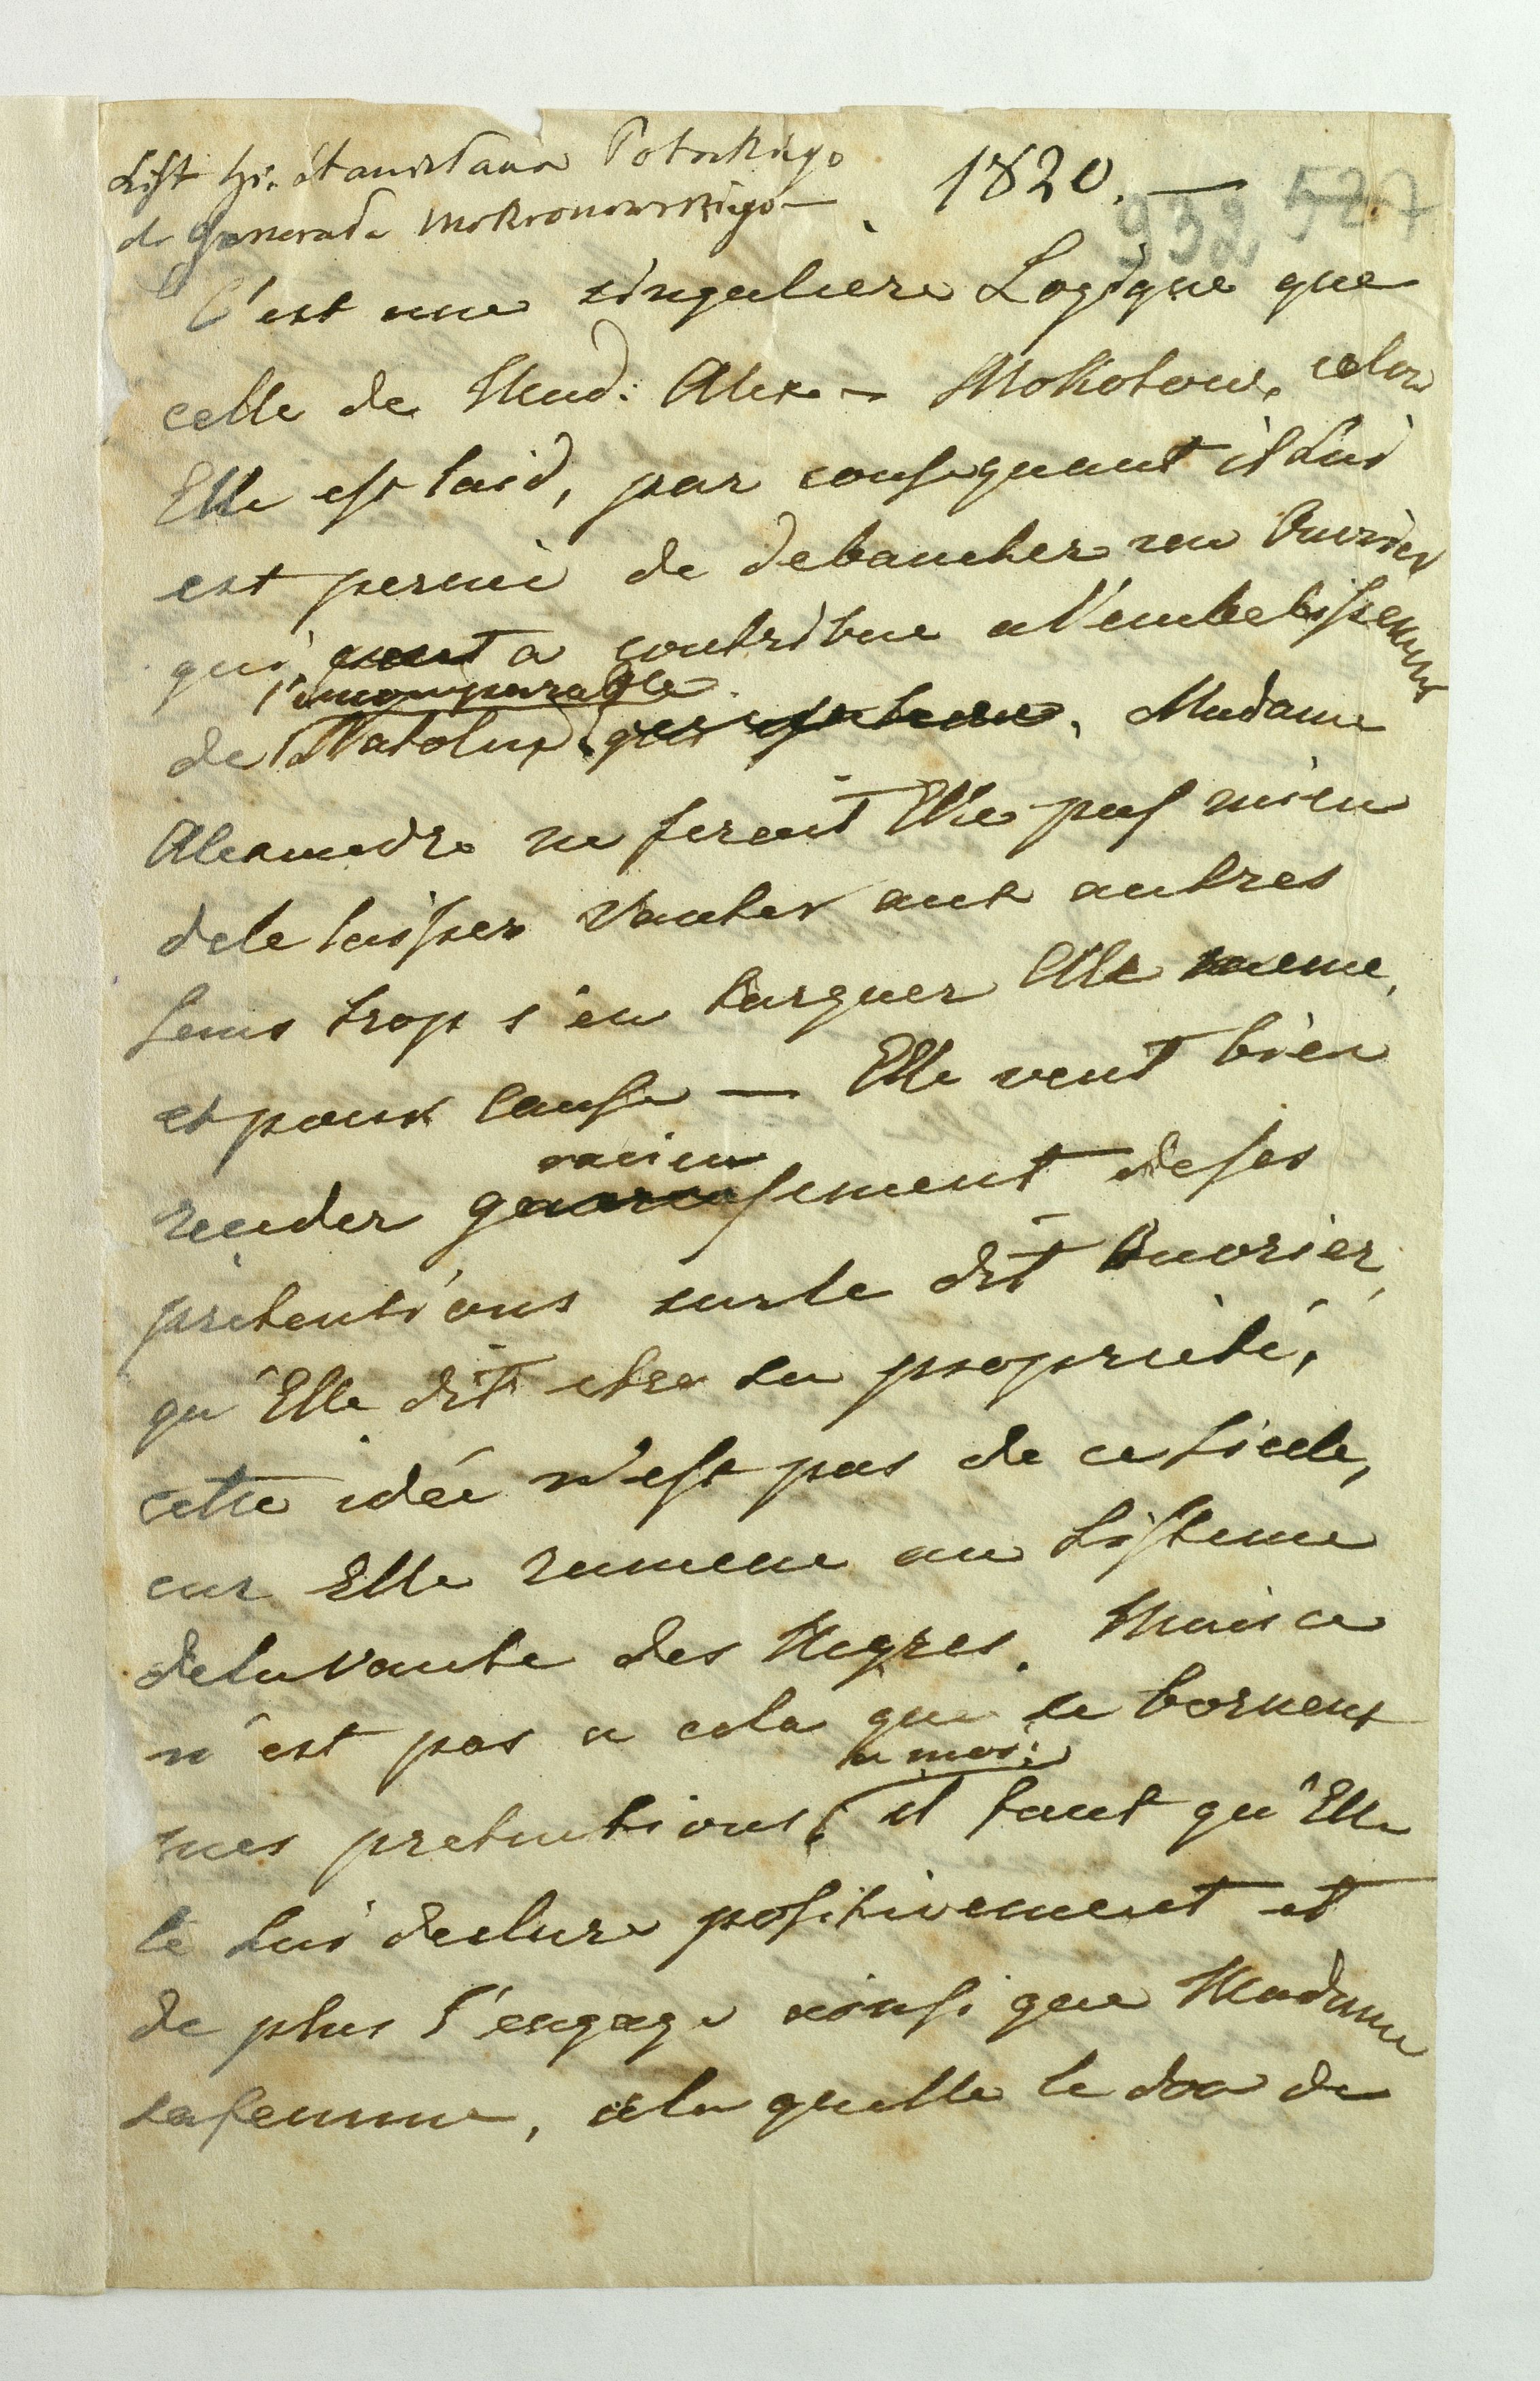 List hr. Stanisława Potockiego
do Generała Mokronowskiego —
1820. —
932 527
C'est une singuliere Logique que
celle de Mad: Alex — Mokotow, selon
Elle est laid, par consequant il Lui
est permi de debaucher un Ouvrier
qui a contribue a l'embelissement
l'incomparable
de Natolin. Madame
Alexandre ne ferait Elle pas mieu
de le laisser vanter aux autres
sans trop s'en targuer Elle meme,
et pour cause — Elle veut bien
rien
render gsement de ses
pretentions sur le dit Ouvrier,
qu'Elle dit etre sa proprieté,
cette idée n'est pas de ce siecle,
car Elle ramene au Sisteme
de la vante des Negres. Mais ce
n'est pas a cela que se bornent
a moi
mes pretentions, il faut qu'Elle
le Lui declare positivement et
de plus l'engage ainsi que Madame
sa femme, a la quelle le don de